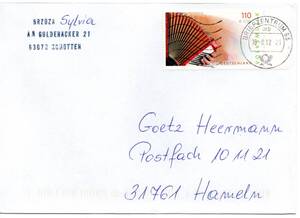 BRZOZA Sylvia
AM GOLDENACKER 21
63679 SCHOTTEN
110
DEUTSCHLAND
BRIEFZENTRUM 63
Goetz Heermann
Postfach 10 11 21
31761 Hameln